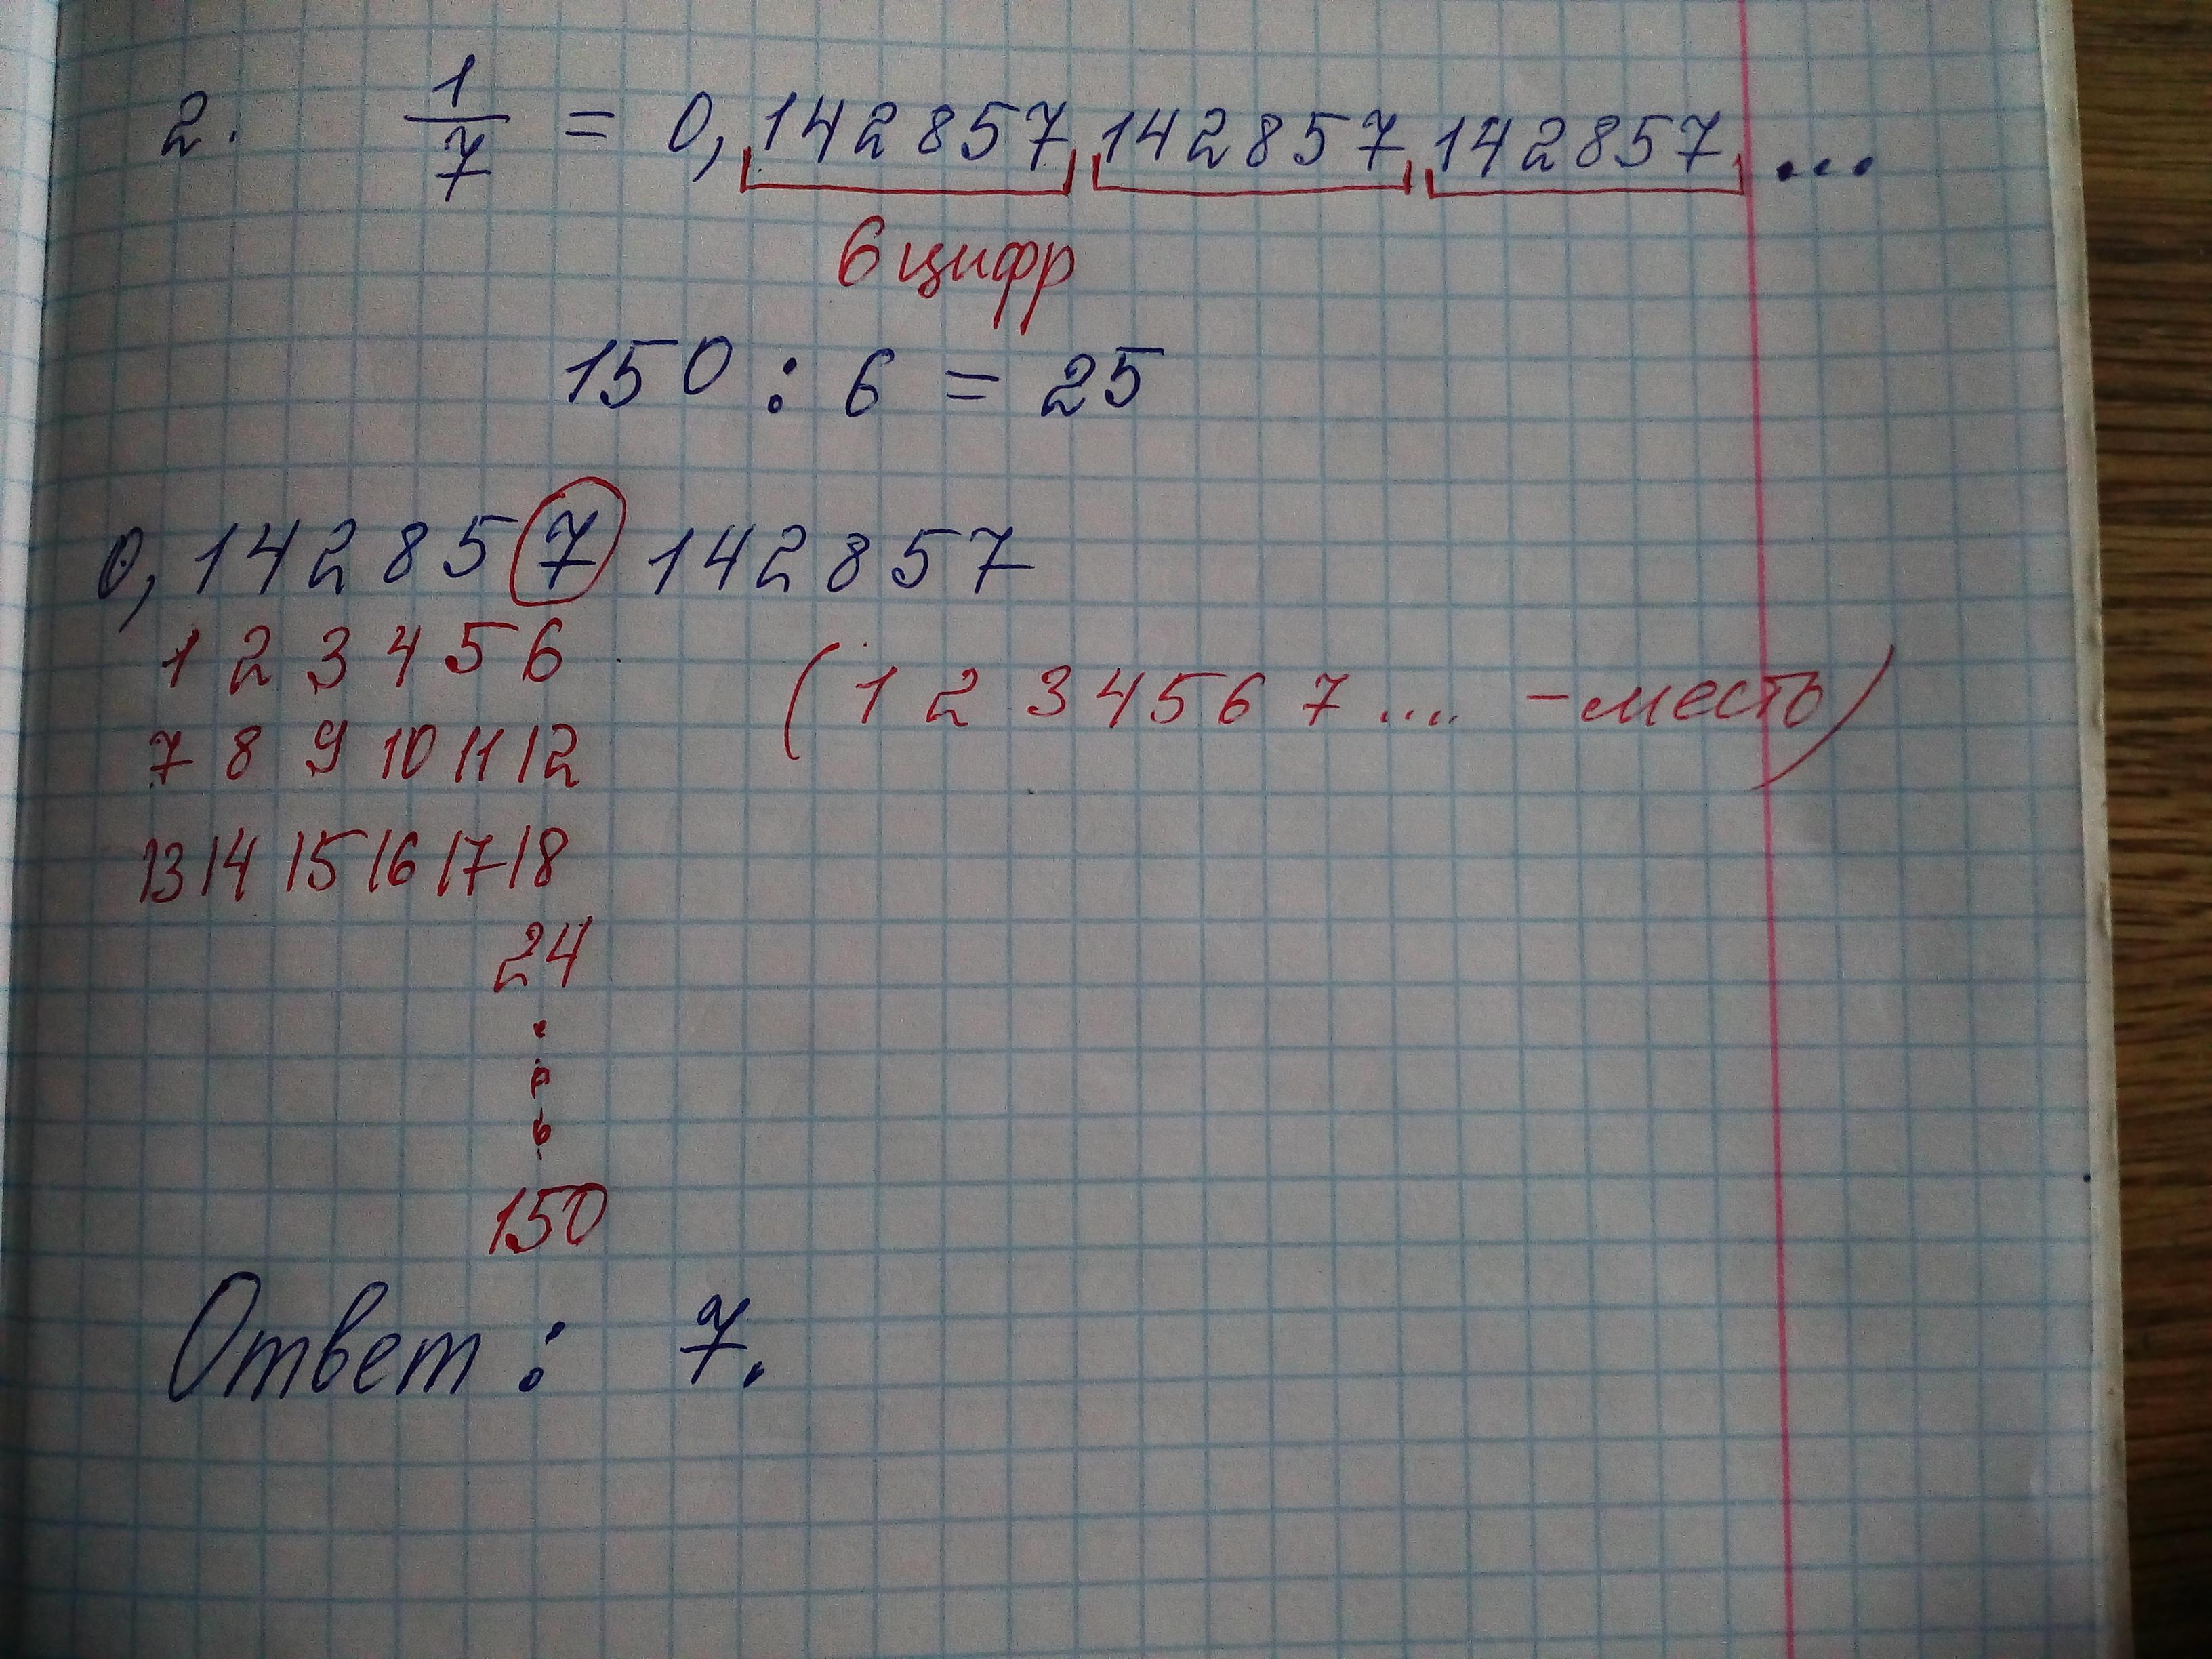 2. 1/7 = 0,142857 142857 142857 ...
6 цифр
150 : 6 = 25
0,142857 142857
1 2 3 4 5 6
(1 2 3 4 5 6 7 .... – месть)
7 8 9 10 11 12
13 14 15 16 17 18
24
150
Ответ: 7.